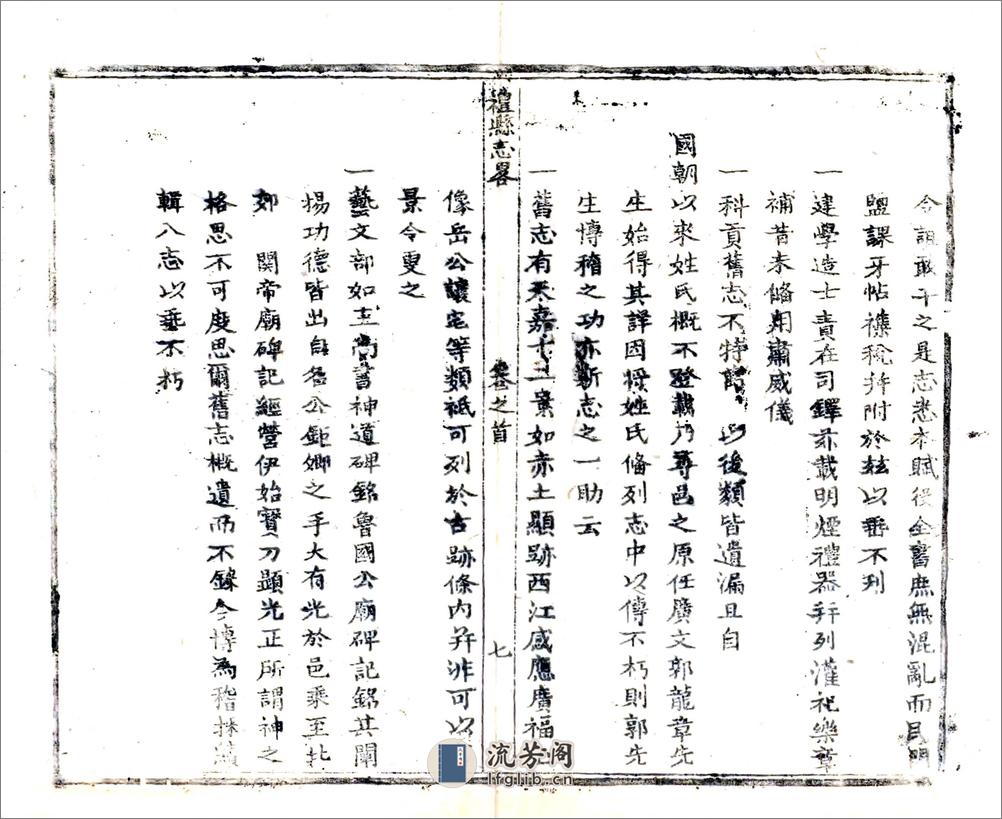 令詎敢干之是志悉本賦役全書庶無混亂而民間
盟課牙帖襍稅并附於玆以垂不刋
一建學造士責在司鐸亦載明煙禮器并列灌祀樂章
補昔未備用肅威儀
一科貢舊志不特 以後類皆遺漏且自
國朝以來姓氏概不登載乃尋邑之原任廣文郭龍章先
生始得其詳因將姓氏備列志中以傳不朽則郭先
生博稽之功亦斯志之一助云
一舊志有天嘉十二景如赤土顯跡西江感應廣福
像岳公讓宅等類祗可列於古跡條內并非可以
景令更之
禮縣志畧
卷之首
七
一藝文部如王尚書神道碑銘魯國公廟碑記銘其闡
揚功德皆出自名公鉅卿之手大有光於邑乘至北
郊 関帝廟碑記經營伊始寳刀顕光正所謂神之
格思不可度思爾舊志概遺而不錄今博為稽採
輯八志以垂不朽
流芳阁
lfglib.cn